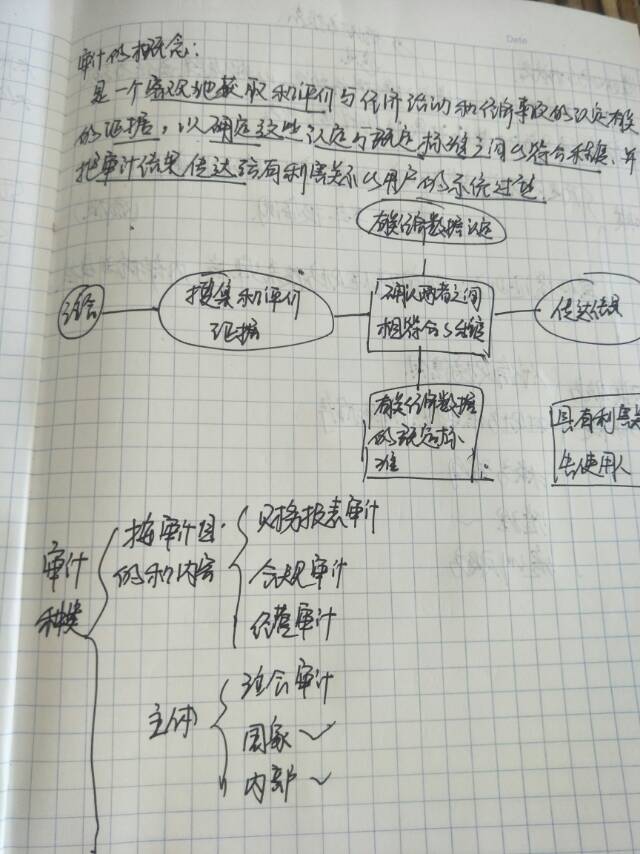 Date
审计的概念：
是一个客观地获取和评价与经济活动和经济事项的认定有关
的证据，以确定这些认定与既定标准之间的符合程度，并
把审计结果传达给有利害关系的用户的系统过程
有关经济数据认定
注会
搜集和评价
证据
确认两者之间
相符合的程度
传达结果
有关经济数据
的既定标
准
具有利害关
告使用人
审计
种类
按审计目
的和内容
财务报表审计
合规审计
经营审计
主体
注会审计
国家 ✓
内部 ✓